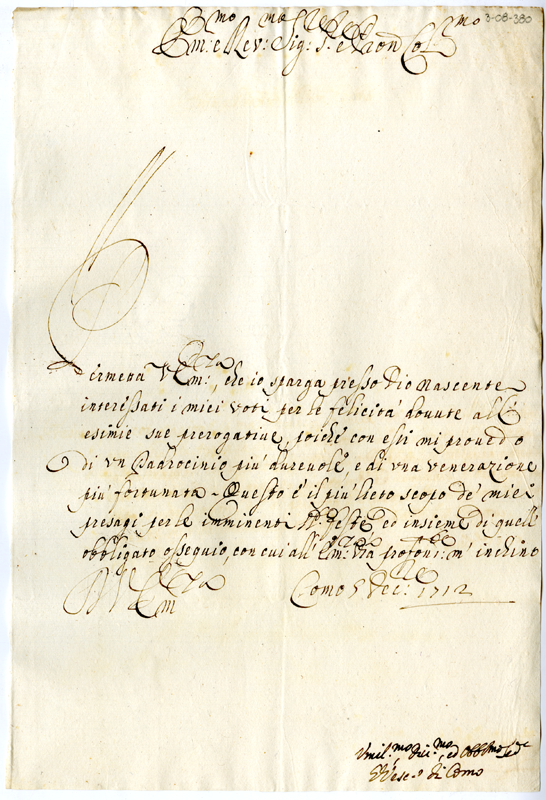 3-08-380
Em:mo e Rev:mo Sig:r Sig:r e Pron Col:mo
Permetta V Em:za, che io sparga presso Dio nascente
interessati i miei voti per le felicità dovute all'
esimie sue prerogative, poiché con essi mi provedo
di un Padrocinio più durevole, e di una venerazione
più fortunata. Questo é il più lieto scopo de' miei
presagi per le imminenti S:te Feste, ed insieme di quell'
obbligato osseguio, con cui all' Em:za Vra m' inchino
Di V Em:za
Como 5 Dec:re 1712
Umil:mo ed Obb:mo
Il Vesc:o di Como